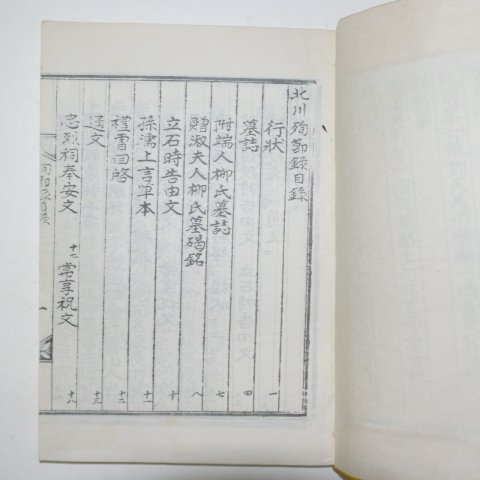 北川殉節錄目錄
行狀 一
墓誌 四
附端人柳氏墓誌 七
贈淑夫人柳氏墓碣銘 八
立石時告由文 十
孫濡上言草本 十一
禮曹回啓 十二
通文 十三
忠烈祠奉安文 十七 常享祝文 十八
殉節錄目錄 一